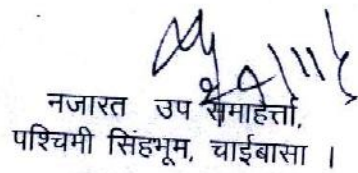 नजारत उप समाहर्त्ता,
पश्चिमी सिंहभूम, चाईबासा ।